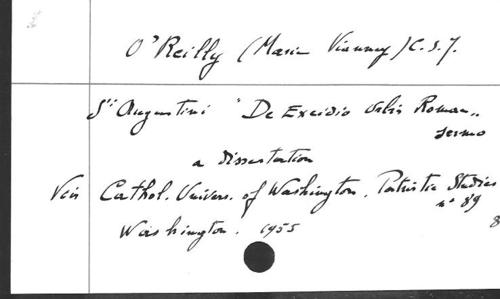 O'Reilly (Marie Vianney) C.S.J.
Sti Augustini "De Excidio Urbis Roman..
sermo
a dissertation
Voir Cathol. Univers. of Washington. Patristic Studies
n° 89
Washington. 1955
8